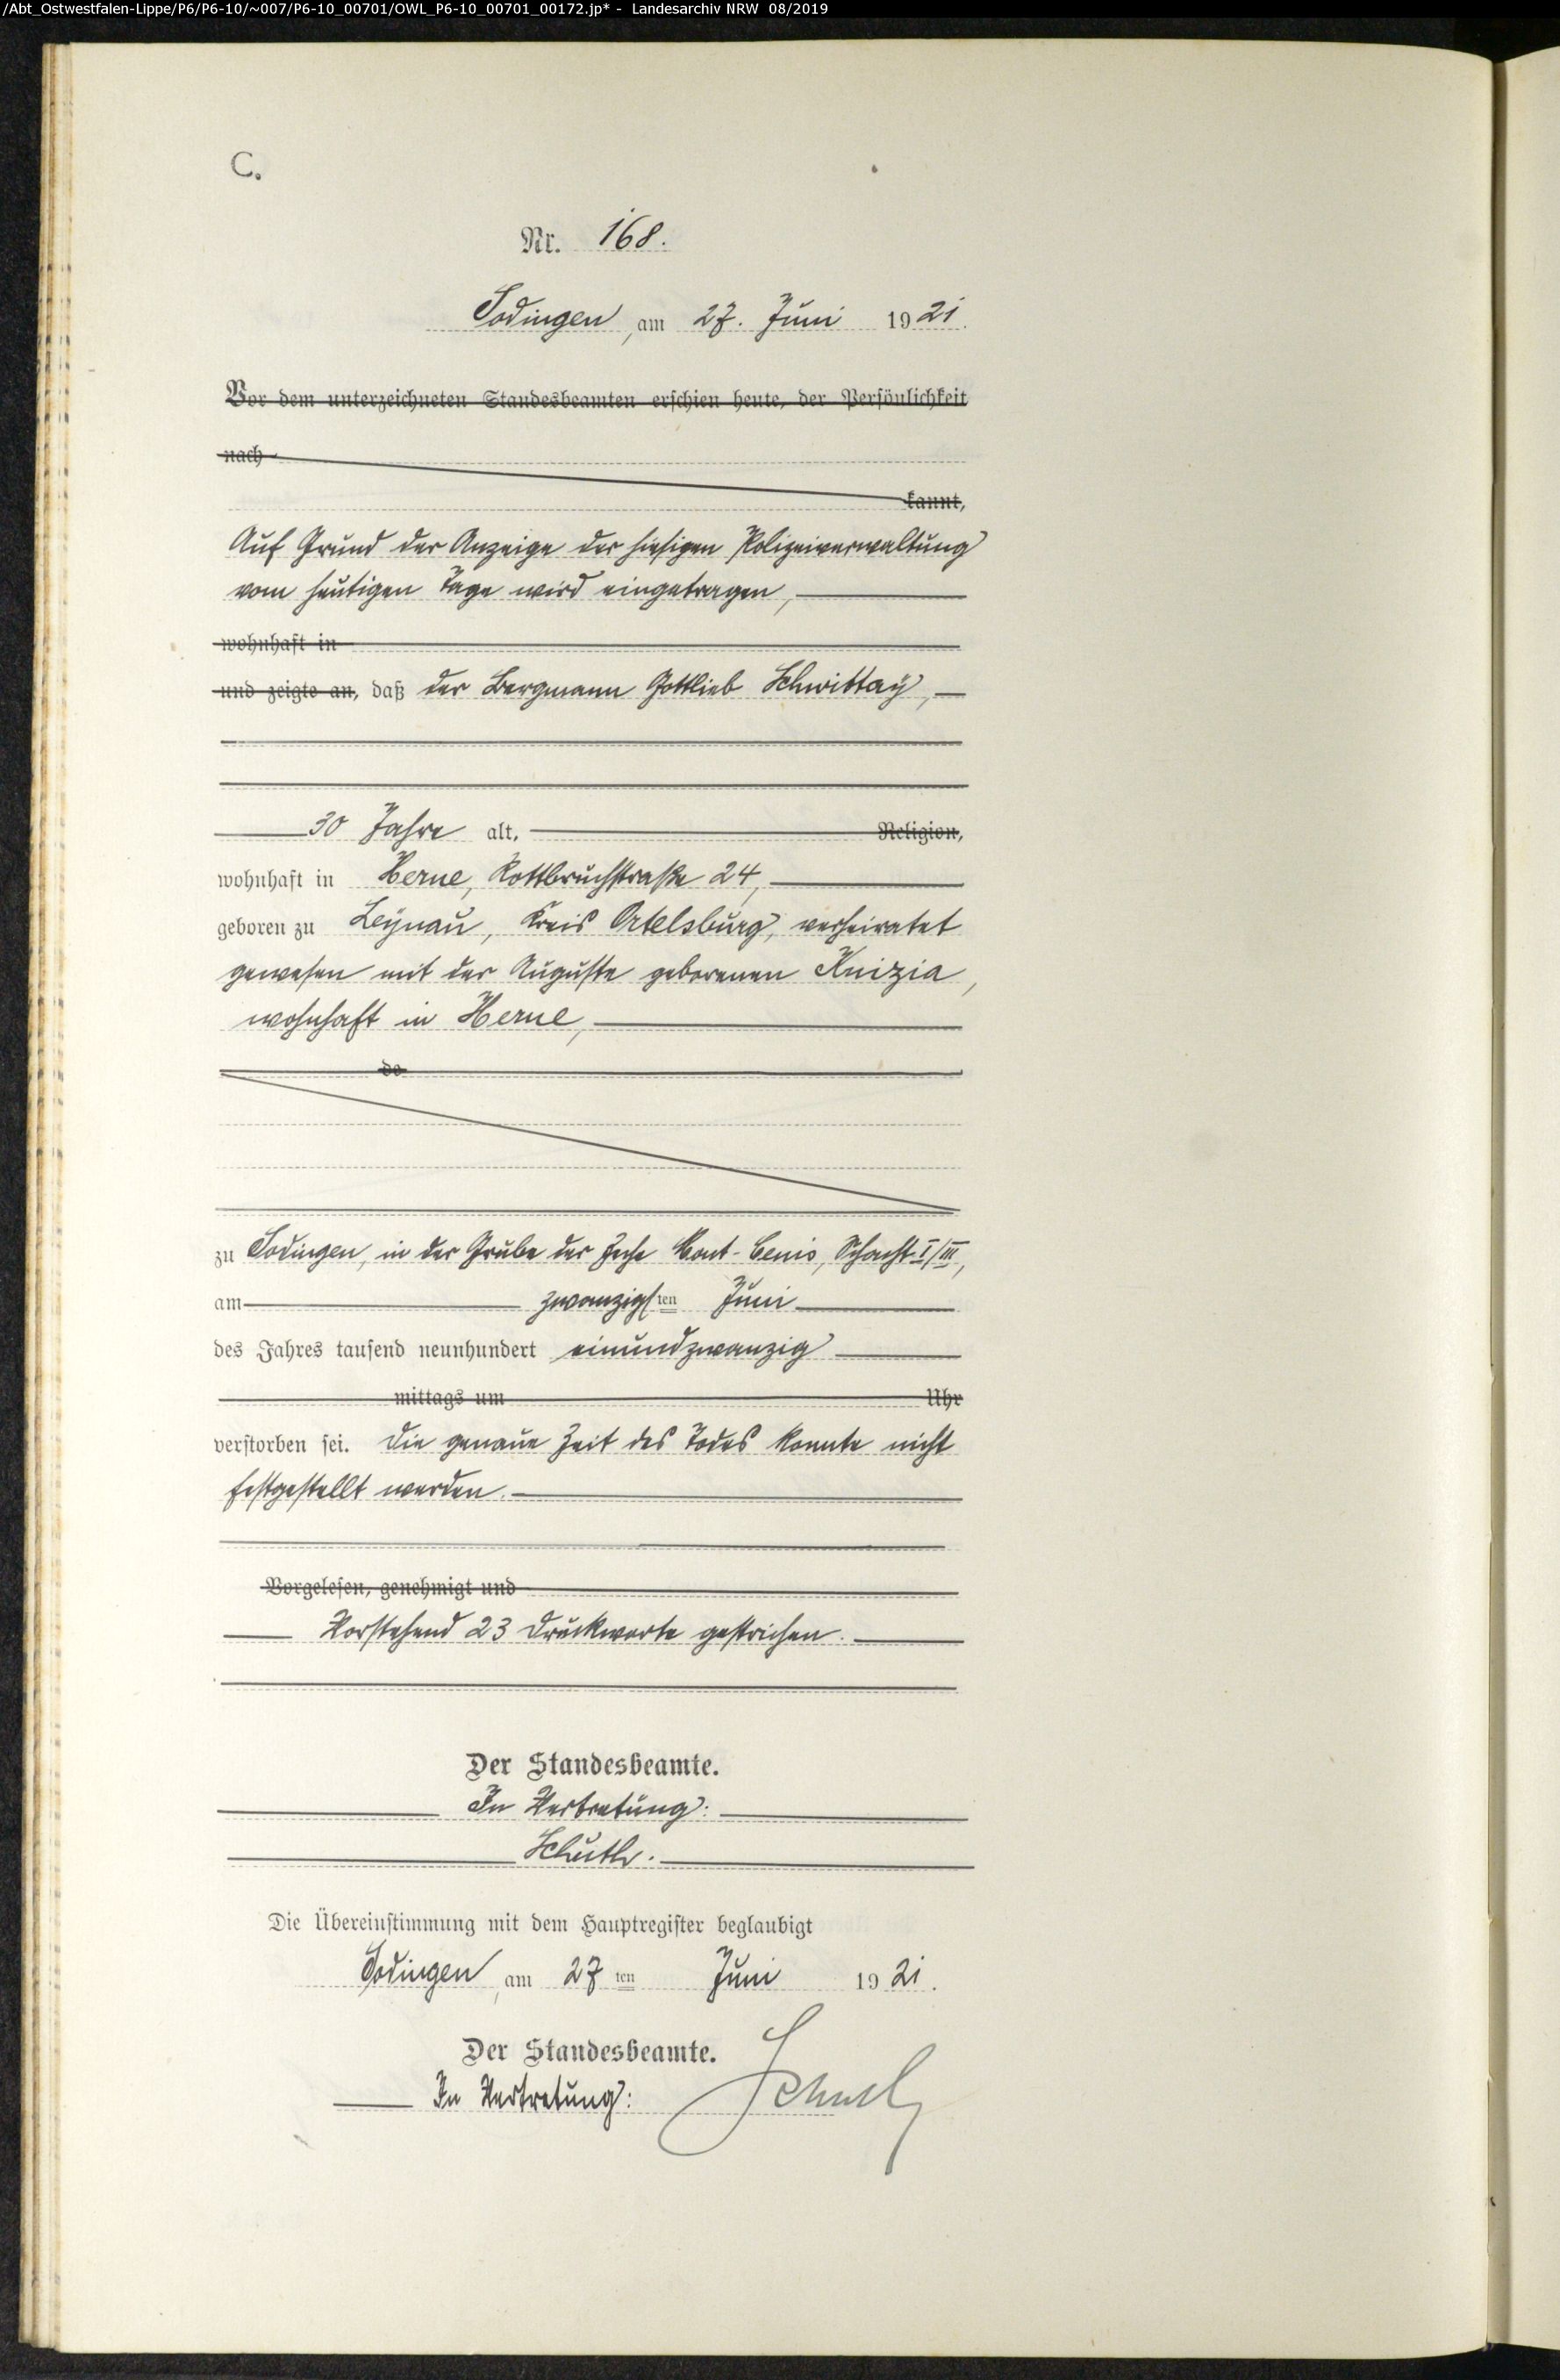 /Abt_Ostwestfalen-Lippe/P6/P6-10/~007/P6-10_00701/OWL_P6-10_00701_00172.jp* - Landesarchiv NRW 08/2019
C.
Nr. 168.
Sodingen, am 27. Juni 1921.
Vor dem unterzeichneten Standesbeamten erschien heute, der Persönlichkeit
nach
kannt,
Auf Grund der Anzeige der hiesigen Polizeiverwaltung
vom heutigen Tage wird eingetragen,
wohnhaft in
und zeigte an, daß der Bergmann Gottlieb Schwittaÿ,
30 Jahre alt, Religion,
wohnhaft in Herne, Rottbruchstraße 24,
geboren zu Leÿnau, Kreis Ortelsburg, verheiratet
gewesen mit der Auguste geborenen Knizia,
wohnhaft in Herne,
de
zu Sodingen, in der Grube der Zeche Mont-Cenis, Schacht I/III,
am zwanzigsten Juni
des Jahres tausend neunhundert einundzwanzig
mittags um Uhr
verstorben sei. Die genaue Zeit des Todes konnte nicht
festgestellt werden.
Vorgelesen, genehmigt und
Vorstehend 23 Druckworte gestrichen.
Der Standesbeamte.
In Vertretung:
Die Übereinstimmung mit dem Hauptregister beglaubigt
Sodingen, am 27ten Juni 1921.
Der Standesbeamte.
In Vertretung: